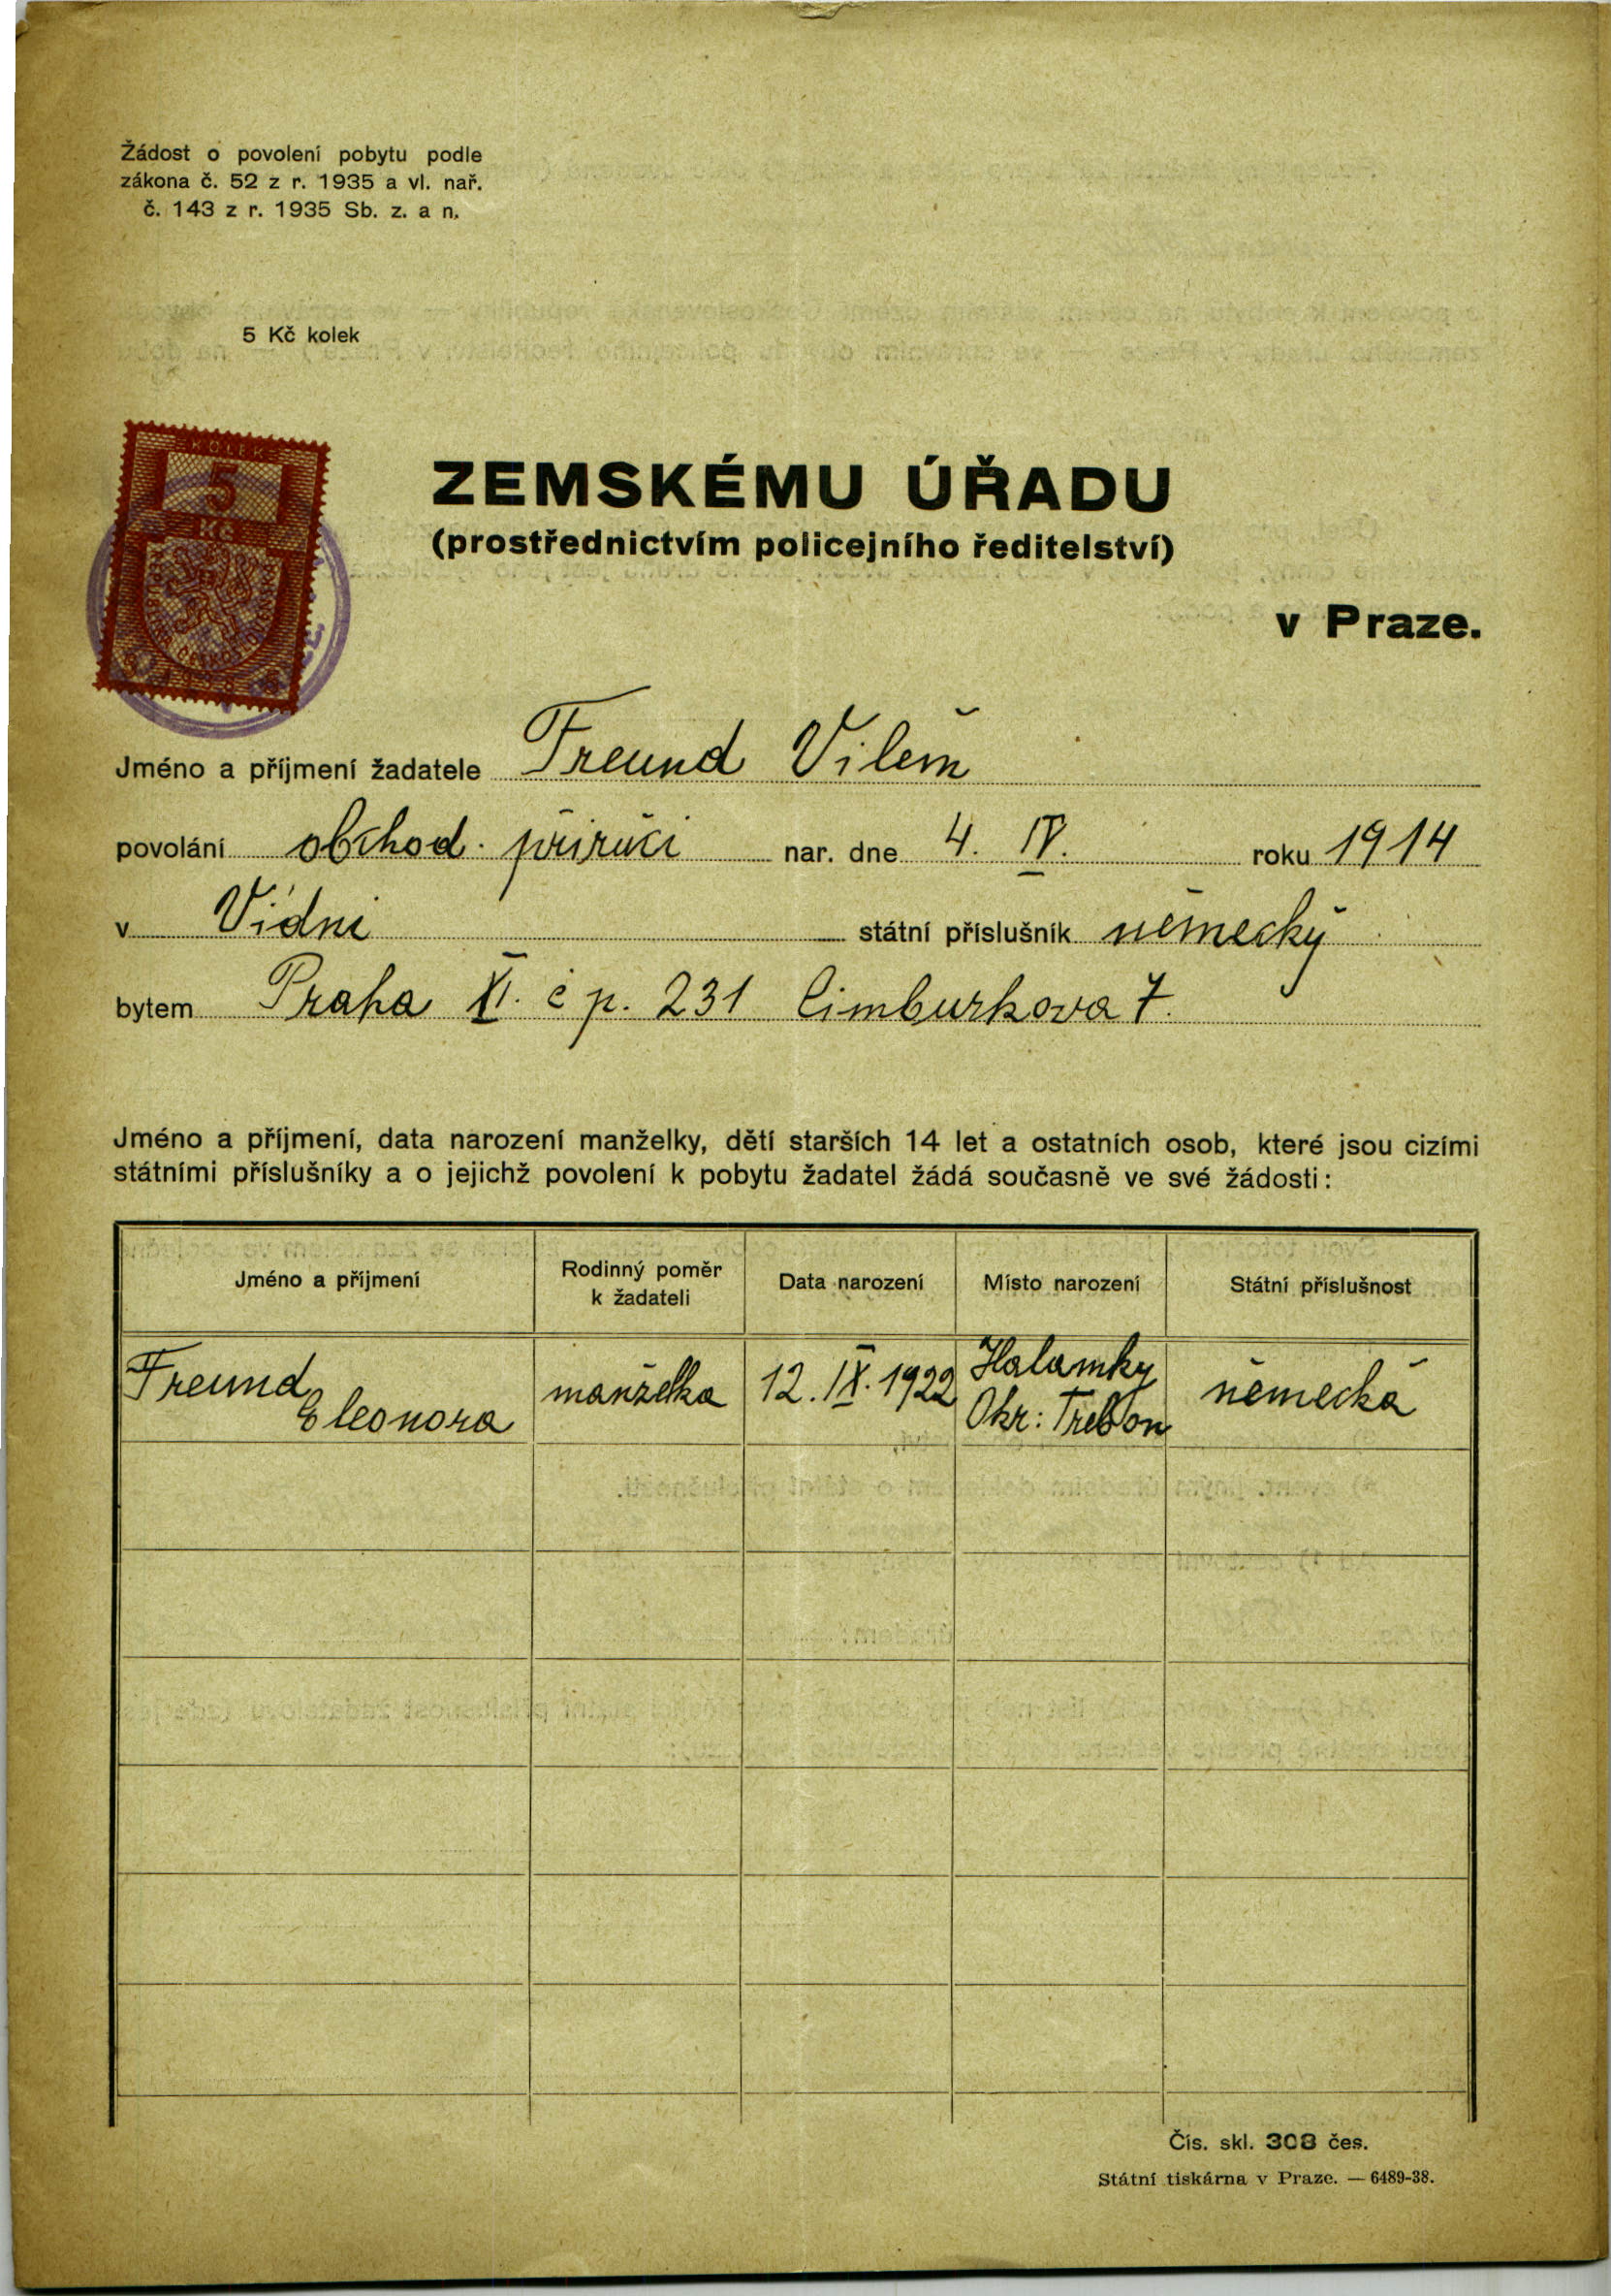 Žádost o povolení pobytu podle
zákona č. 52 z r. 1935 a vl. nař.
č. 143 z r. 1935 Sb. z. a n.
5 Kč kolek
KOLEK
5
Kč
ZEMSKÉMU ÚŘADU
(prostřednictvím policejního ředitelství)
v Praze.
Jméno a příjmení žadatele Freund Vilém
povolání obchod. příručí nar. dne 4. IV. roku 1914
v Vídni státní příslušník německý
bytem Praha XI. č p. 231 Cimburkova 7.
Jméno a příjmení, data narození manželky, dětí starších 14 let a ostatních osob, které jsou cizími
státními příslušníky a o jejichž povolení k pobytu žadatel žádá současně ve své žádosti:
Jméno a příjmení Rodinný poměr k žadateli Data narození Místo narození Státní příslušnost
Freund Eleonora manželka 12. IX. 1922 Halamky Okr: Třeboň německá
Čís. skl. 308 čes.
Státní tiskárna v Praze. — 6489-38.